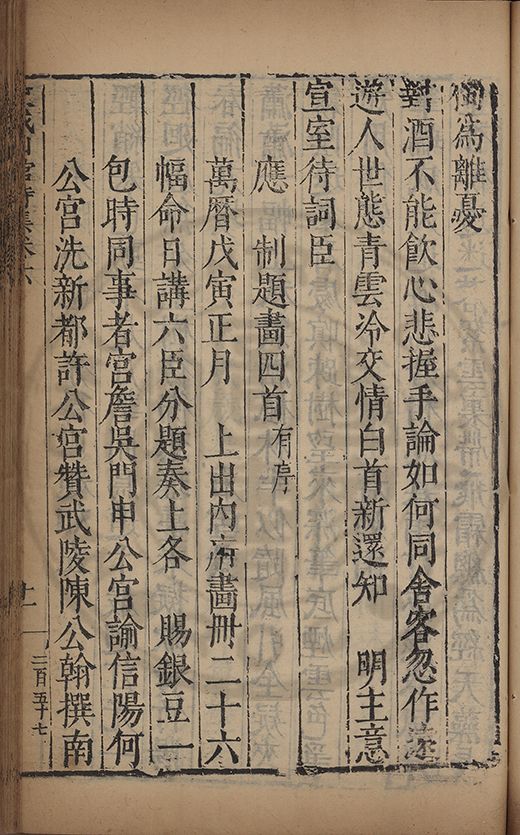 何為離憂
對酒不能飲心悲握手論如何同舍客忽作遠
遊人世態青雲冷交情白首新還知　明主意
宣室待詞臣
應　制題畫四首有序
萬曆戊寅正月　上出內府畫冊二十六
幅命日講六臣分題奏上各　賜銀豆一
包時同事者宮詹吳門申公宮諭信陽何
公宮洗新都許公宮贊武陵陳公翰撰南
集卷六
十一
二百五十七